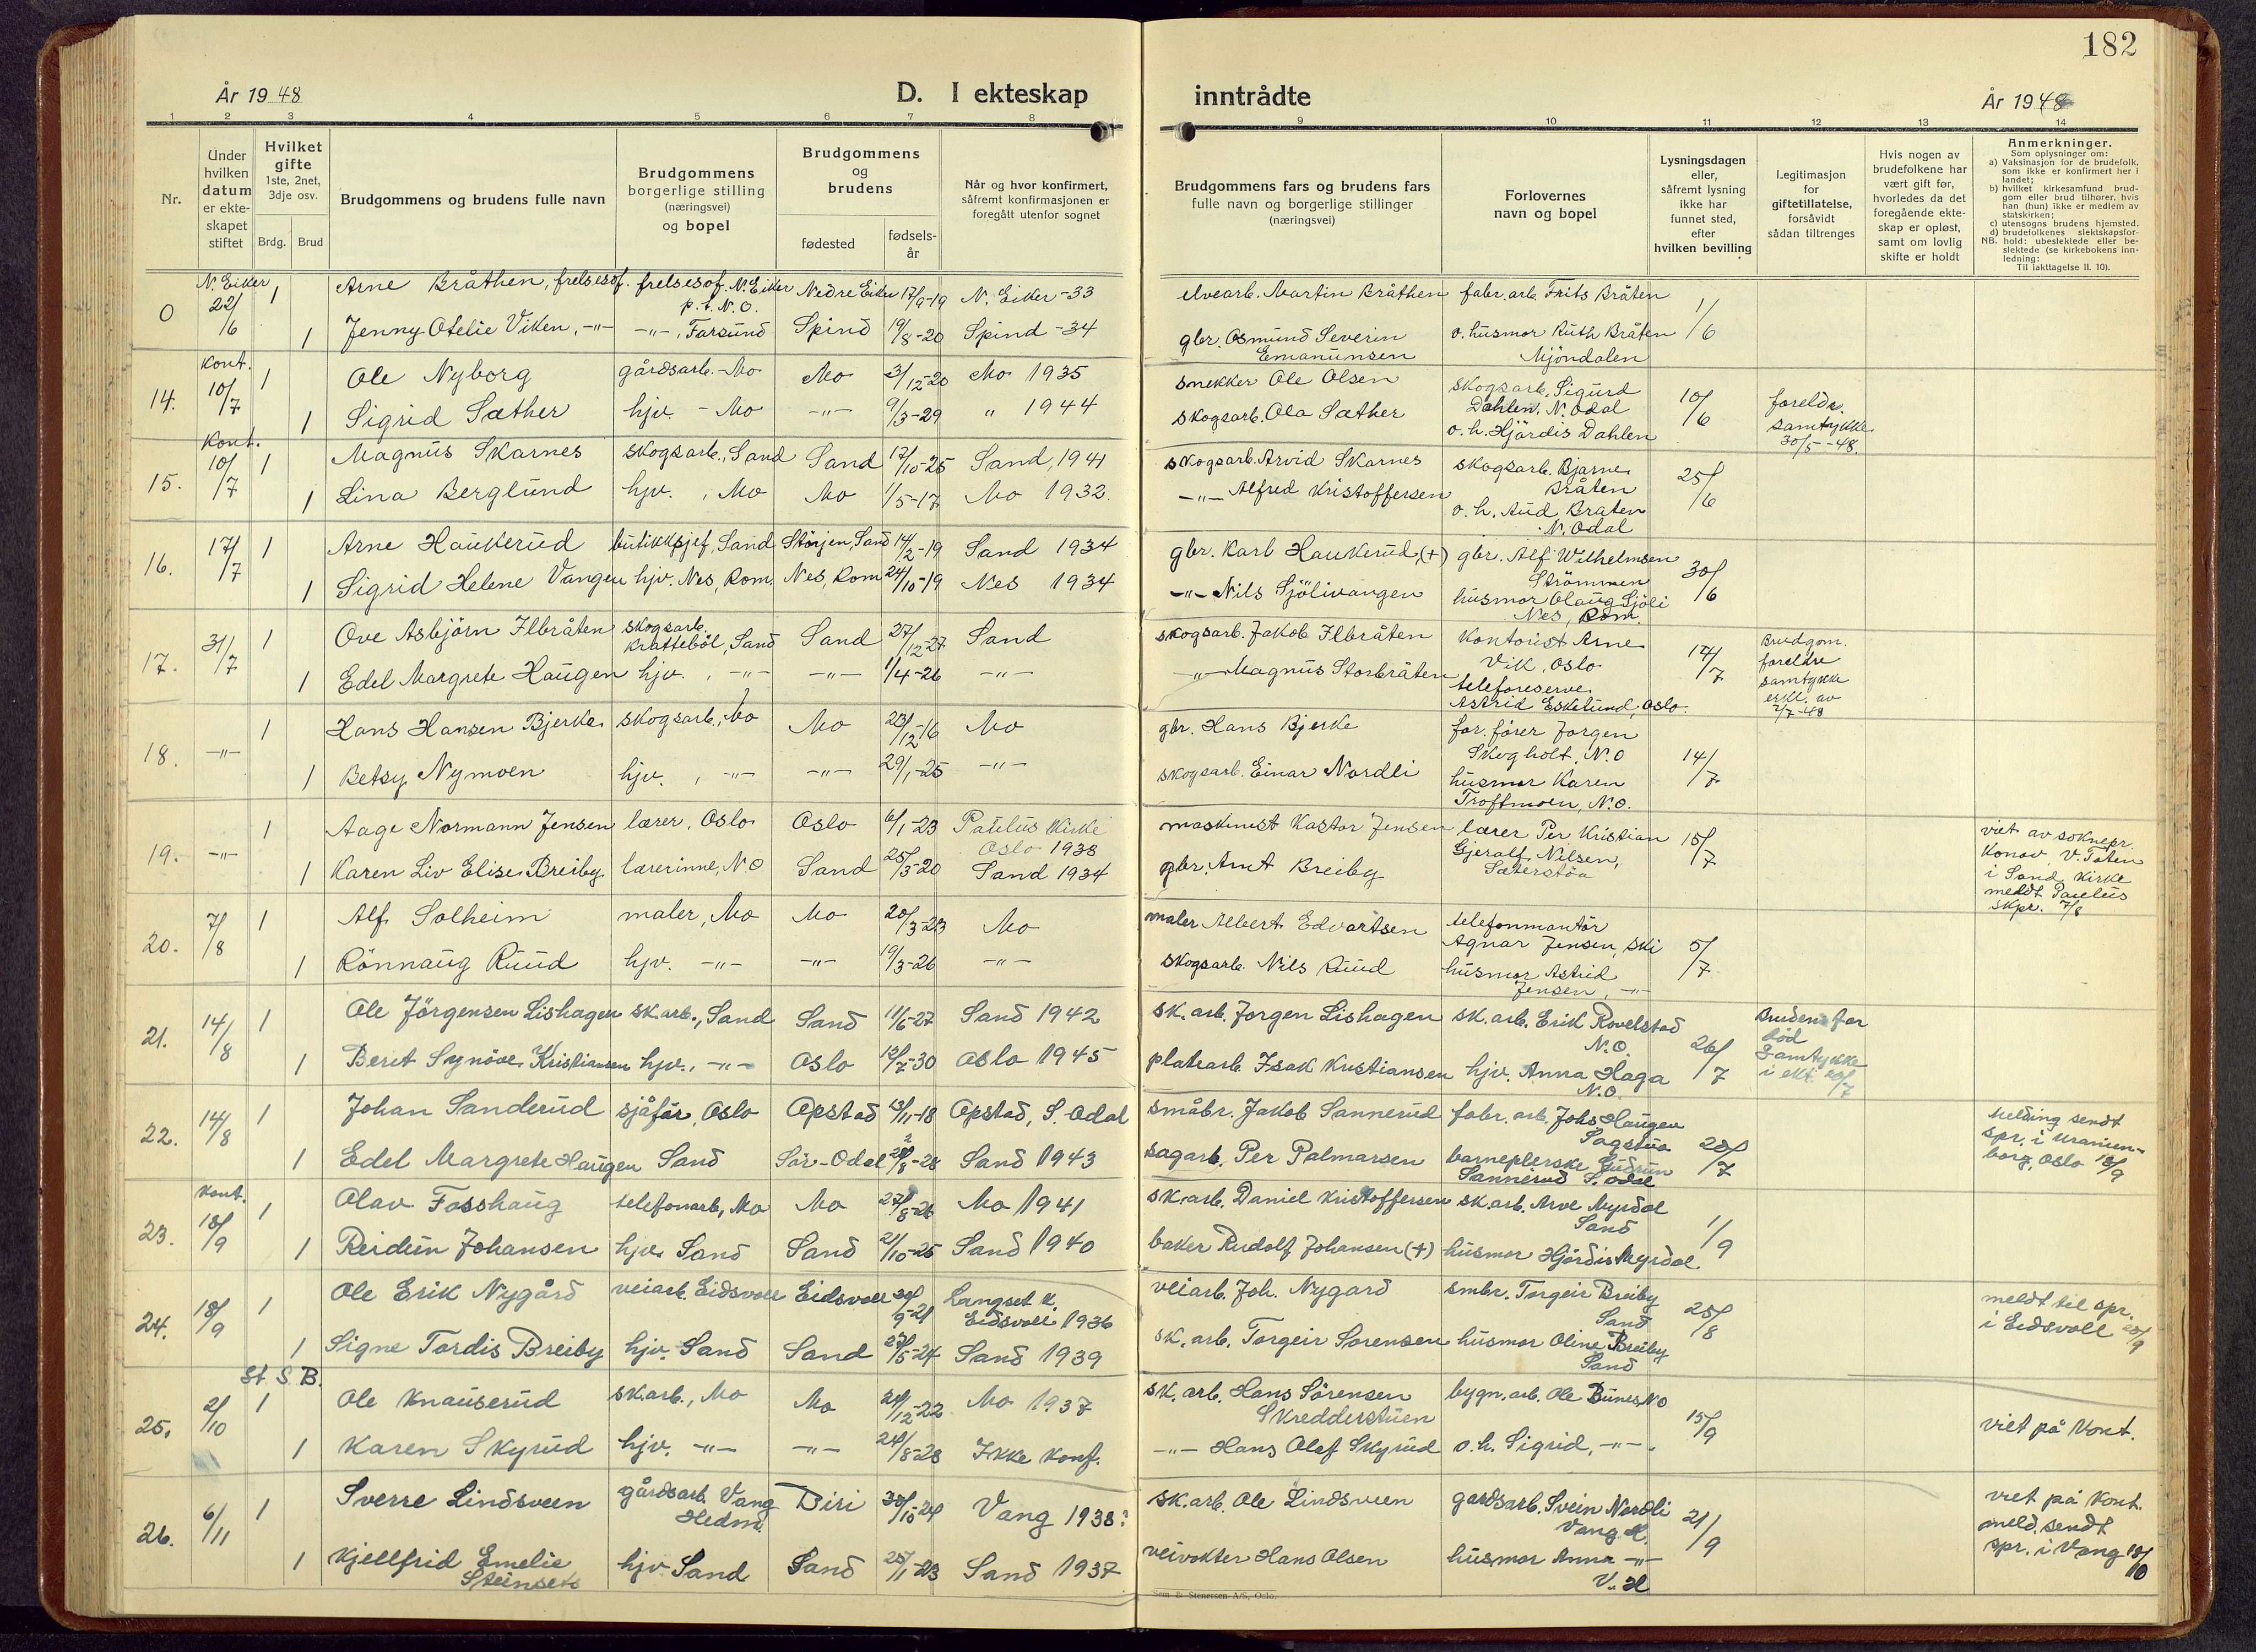 182
År 1948
D. I ekteskap
inntrådte
År 1948
1 2 3 4 5 6 7 8
9 10 11 12 13 14
Nr.
Under hvilken datum er ekteskapet stiftet
Hvilket gifte
1ste, 2net, 3dje osv.
Brdg. Brud
Brudgommens og brudens fulle navn
Brudgommens borgerlige stilling (næringsvei) og bopel
Brudgommens og brudens
fødested
fødselsår
Når og hvor konfirmert, såfremt konfirmasjonen er foregått utenfor sognet
Brudgommens fars og brudens fars fulle navn og borgerlige stillinger (næringsvei)
Forlovernes navn og bopel
Lysningsdagen eller, såfremt lysning ikke har funnet sted, efter hvilken bevilling
Legitimasjon for giftetillatelse, forsåvidt sådan tiltrenges
Hvis nogen av brudefolkene har vært gift før, hvorledes da det foregående ekteskap er opløst, samt om lovlig skifte er holdt
Anmerkninger.
Som oplysninger om:
a) Vaksinasjon for de brudefolk, som ikke er konfirmert her i landet;
b) hvilket kirkesamfund brudgom eller brud tilhører, hvis han (hun) ikke er medlem av statskirken;
c) utensogns brudens hjemsted.
d) brudefolkenes slektskapsforhold: ubeslektede eller beslektede (se kirkebokens innledning:
NB. Til iakttagelse ll. 10).
0 N. Eiker 22/6 1 Arne Bråthen, frelsesof. frelsesof. N. Eiker p.t. N.O. Nedre Eiker 17/9-19 N. Eiker -33 elvearb. Martin Bråthen fabr. arb. Frits Bråten 1/6
1 Jenny Otelie Viken, -"- -"-, Farsund Spind 19/8-20 Spind -34 gbr. Osmund Severin Emanunsen o. husmor Ruth Bråten Mjöndalen
14. Kont. 10/7 1 Ole Nyborg gårdsarb. - Mo Mo 3/12-20 Mo 1935 snekker Ole Olsen skogsarb. Sigurd Dahlen, N. Odal 10/6 foreldr. samtykke 30/5-48.
1 Sigrid Sæther hjv. - Mo -"- 9/3-29 " 1944 skogsarb. Ola Sæther o. h. Hjördis Dahlen
15. Kont. 10/7 1 Magnus Skarnes skogsarb., Sand Sand 17/10-25 Sand, 1941 skogsarb. Arvid Skarnes skogsarb. Bjarne Bråten 25/6
1 Lina Berglund hjv. , Mo Mo 1/5-17 Mo 1932. -"- Alfred Kristoffersen o. h. Aud Bråten N. Odal
16. 17/7 1 Arne Haukerud butikksjef, Sand Störjen, Sand 14/2-19 Sand 1934 gbr. Karl Haukerud, (+) gbr. Alf Wilhelmsen Strömmen 30/6
1 Sigrid Helene Vangen hjv. Nes, Rom. Nes, Rom 24/10-19 Nes 1934 -"- Nils Sjölivangen husmor Olaug Sjöli Nes, Rom.
17. 31/7 1 Ove Asbjörn Ilbråten skogsarb. Kratteböl, Sand Sand 27/12-27 Sand skogsarb. Jakob Ilbråten Kontorist Arne Vik, Oslo 14/7 Brudgom. foreldre samtykke erkl. av 2/7-48
1 Edel Margrete Haugen hjv. , -"- -"- 1/4-26 -"- -"- Magnus Storbråten Astrid Eskelund, Oslo.
18. -"- 1 Hans Hansen Bjerke skogsarb., Mo Mo 23/12-16 Mo gbr. Hans Bjerke for. fører Jørgen Skogholt, N.O 14/7
1 Betsy Nymoen hjv. , -"- -"- 29/1-25 -"- skogsarb. Einar Nordli husmor Karen Troftmoen, N.O.
19. -"- 1 Aage Normann Jensen lærer, Oslo Oslo 6/1-23 Paulus Kirke Oslo 1938 maskinist Kastor Jensen lærer Per Kristian Gjeralf Nilsen, Sæterstöa 15/7 viet av soknepr. Konow, V. Toten i Sand Kirke meldt Paulus skpr. 7/8
1 Karen Liv Elise Breiby lærerinne, N.O Sand 25/3-20 Sand 1934 gbr. Arnt Breiby
20. 7/8 1 Alf Solheim maler, Mo Mo 20/3-23 Mo maler Albert Edvartsen telefonmontör Agnar Jensen, Ski 5/7
1 Rönnaug Ruud hjv. -"- -"- 19/3-26 -"- skogsarb. Nils Ruud husmor Astrid Jensen, -"-
21. 14/8 1 Ole Jörgensen Lishagen sk.arb., Sand Sand 11/6-27 Sand 1942 sk. arb. Jørgen Lishagen sk. arb. Erik Rovelstad N.O. 26/7 Brudens far død Samtykke i ekt. 20/7
1 Beret Synöve Kristiansen hjv., -"- Oslo 12/7-30 Oslo 1945 platearb. Isak Kristiansen hjv. Anna Haga N.O.
22. 14/8 1 Johan Sanderud sjåfør, Oslo Opstad 13/11-18 Opstad, S. Odal småbr. Jakob Sannerud fabr. arb. Johs Haugen Sagstua 28/7 Melding sendt spr. i Uranienborg, Oslo 18/9
1 Edel Margrete Haugen Sand Sør-Odal -28 Sand 1943 sagarb. Per Palmarsen barnepleieske Gudrun Sannerud S. Odal
23. Kont. 18/9 1 Olav Fosshaug telefonarb., Mo Mo 27/8-26 Mo 1941 sk. arb. Daniel Kristoffersen sk.arb. Arve Myrdal Sand 1/9
1 Reidun Johansen hjv. Sand Sand 21/10-25 Sand 1940 baker Rudolf Johansen (+) husmor Hjördis Myrdal
24. 18/9 1 Ole Erik Nygård veiarb. Eidsvoll Eidsvoll 20/9-21 Langset k. Eidsvoll 1936 veiarb. Joh. Nygard smbr. Torgeir Breiby Sand 25/8 meldt til spr. i Eidsvoll 20/9
1 Signe Tordis Breiby hjv. Sand Sand 27/5-24 Sand 1939 sk. arb. Torgeir Sørensen husmor Oline Breiby Sand
25. St. S. B. 2/10 1 Ole Knauserud sk.arb., Mo Mo 24/12-22 Mo 1937 sk. arb. Hans Sörensen Skredderstuen bygn. arb. Ole Bunes N.O 15/9 viet på Kont.
1 Karen Skyrud hjv. -"- -"- 24/8-28 Ikke Konf. -"- Hans Olaf Skyrud o. h. Sigrid, -"-
26. 6/11 1 Sverre Lindsveen gårdsarb. Vang Hedm. Biri 30/10-24 Vang 1938? sk. arb. Ole Lindsveen gardsarb. Svein Nordli Vang H. 21/9 viet på Kont. meld. sendt spr. i Vang 18/10
1 Kjellfrid Emelie Steinseth hjv. Sand Sand 25/1-23 Sand 1937 veivokter Hans Olsen husmor Anna -"- V. H
Sem & Stenersen A/S, Oslo.